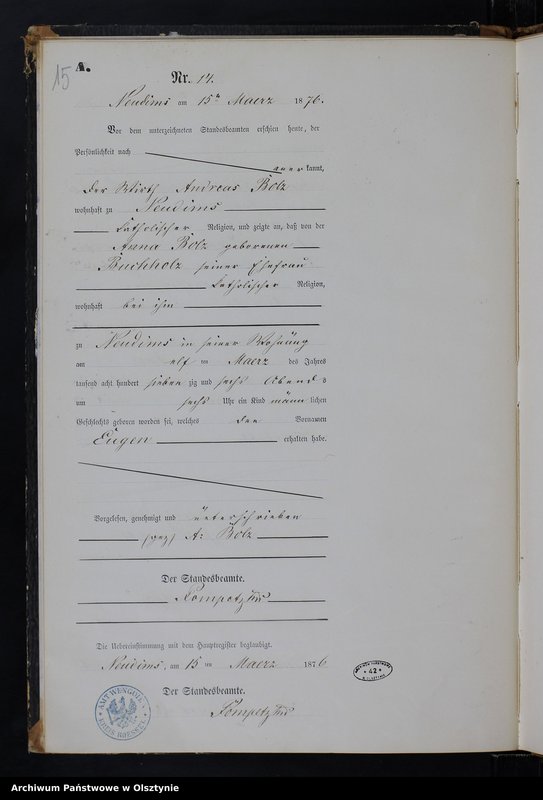 15
A.
Nr. 14.
Neudims am 15ten Maerz 1876.
Vor dem unterzeichneten Standesbeamten erschien heute, der
Persönlichkeit nach
kannt,
der Wirth Andreas Bolz
wohnhaft zu Neudims
katholischer Religion, und zeigte an, daß von der
Anna Bolz geborenen
Buchholz seiner Ehefrau
katholischer Religion,
wohnhaft bei ihm
zu Neudims in seiner Wohnung
am elf ten Maerz des Jahres
tausend acht hundert sieben zig und sechs Abend s
um sechs Uhr ein Kind männ lichen
Geschlechts geboren worden sei, welches den Vornamen
Eugen erhalten habe.
Vorgelesen, genehmigt und unterschrieben
(gez) A: Bolz
Der Standesbeamte.
Die Uebereinstimmung mit dem Hauptregister beglaubigt.
Neudims, am 15 ten Maerz 1876
Der Standesbeamte.
42
Archiwum Państwowe w Olsztynie